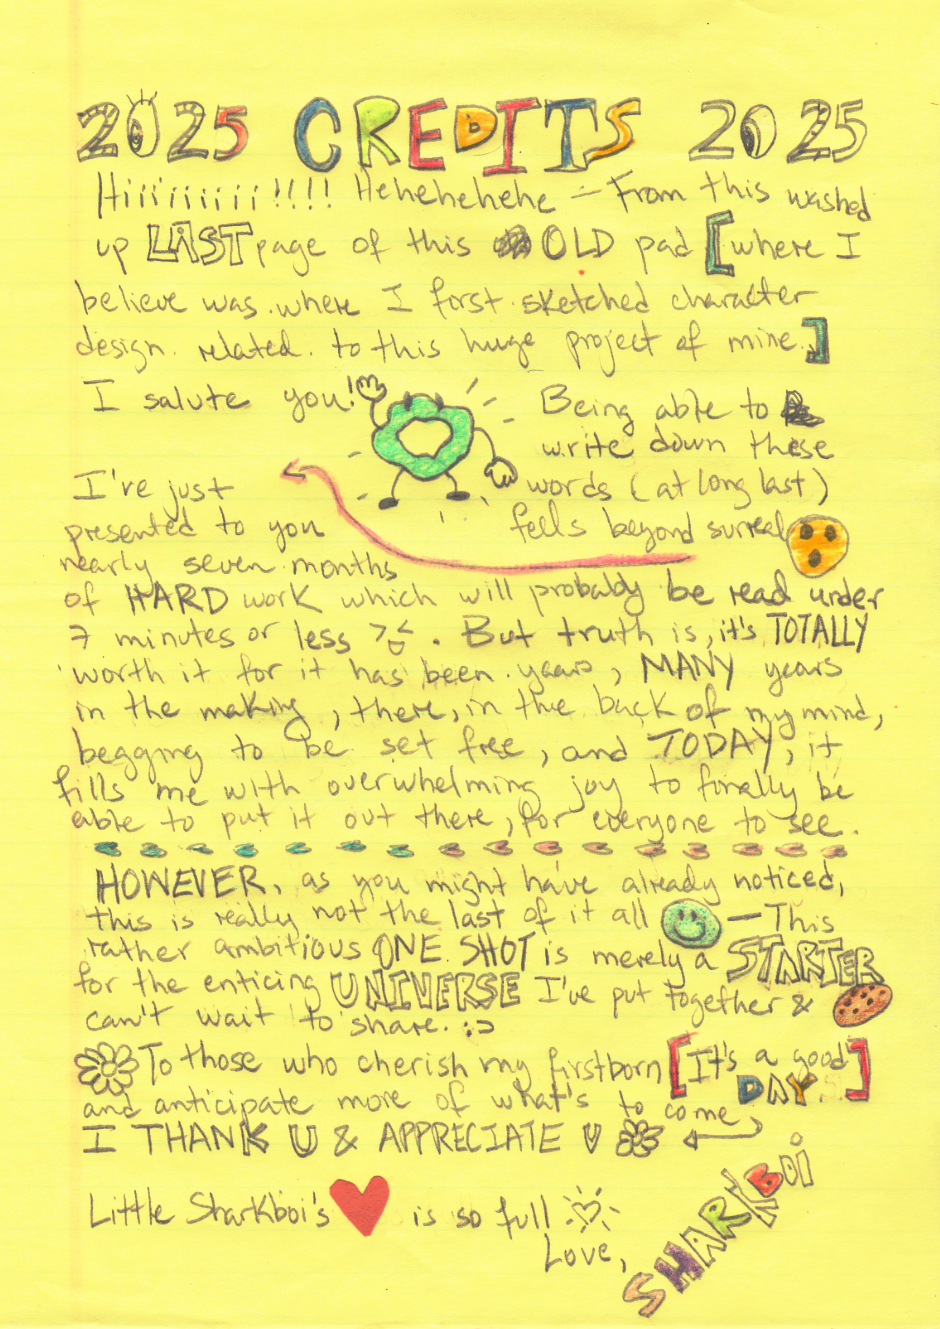 2025 CREDITS 2025
Hiiiiiiiii!!!! Hehehehehe – From this washed
up LAST page of this OLD pad [where I
believe was where I forst sketched character
design related to this huge project of mine.]
I salute you!
Being able to
write down these
words (at long last)
feels beyond surreal
I've just
presented to you
nearly seven months
of HARD work which will probably be read under
7 minutes or less. But truth is, it's TOTALLY
worth it for it has been years, MANY years
in the making, there, in the back of my mind,
begging to be set free, and TODAY, it
fills me with overwhelming joy to finally be
able to put it out there, for everyone to see.
HOWEVER, as you might have already noticed,
this is really not the last of it all — This
rather ambitious ONE SHOT is merely a STARTER
for the enticing UNIVERSE I've put together &
can't wait to share. :>
To those who cherish my firstborn [It's a good
DAY.]
and anticipate more of what's to come,
I THANK U & APPRECIATE U
Little Sharkboi's ♥ is so full
Love,
SHARKBOi